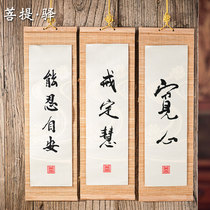 菩提/驿
能忍自安
戒定慧
寬心